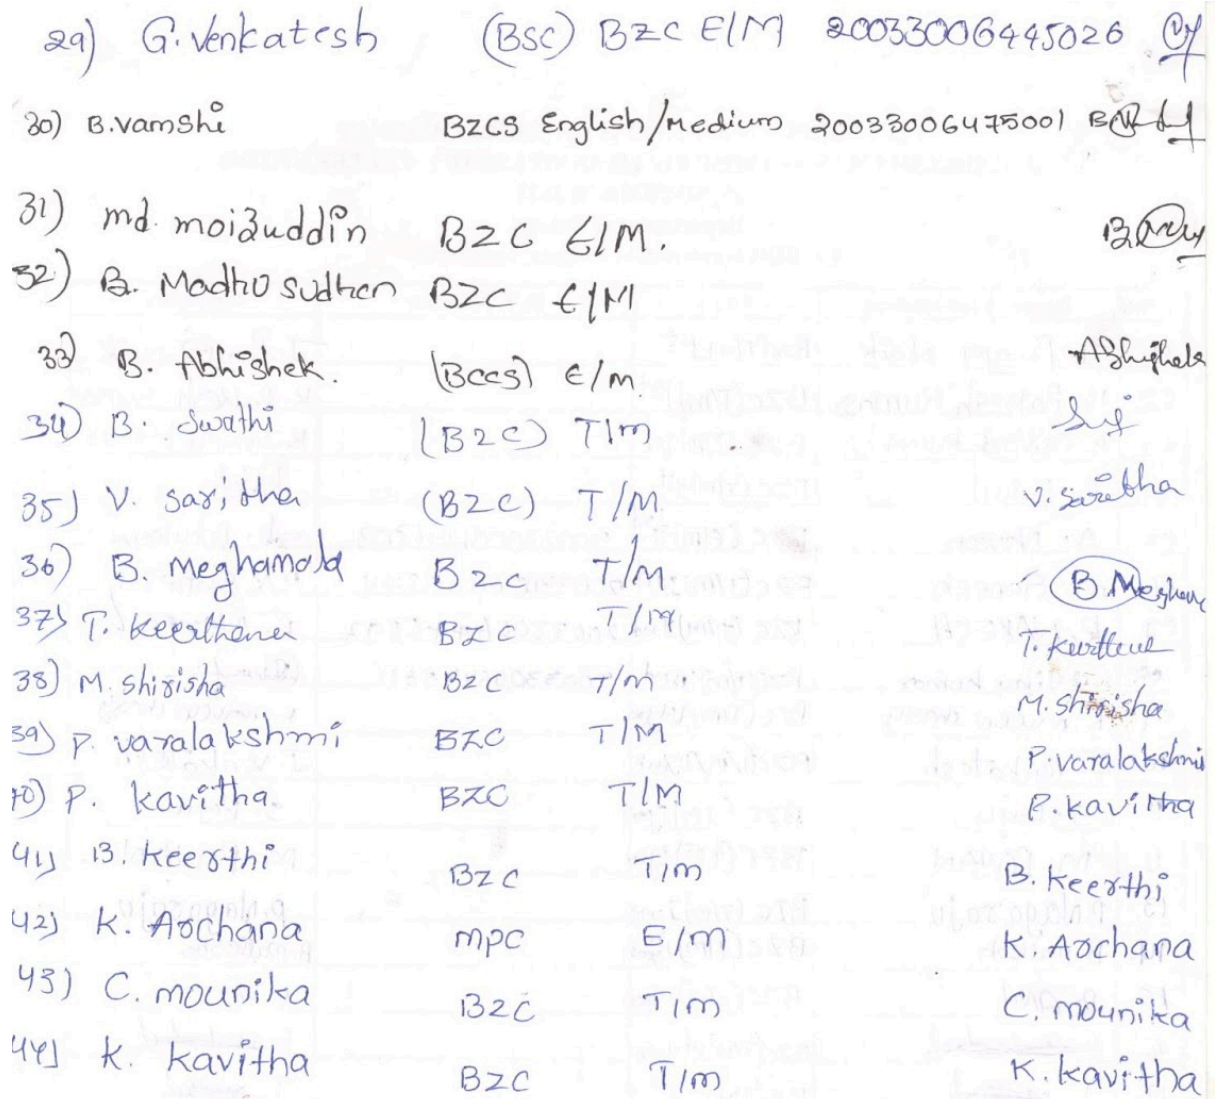 29) G. Venkatesh (BSC) BZC E/M 20033006445026
30) B. Vamshi BZCS English/Medium 20033006475001
31) md. moizuddin BZC E/M.
32) B. Madhu sudhan BZC E/M
33) B. Abhishek. (BCCS) E/m Abhishek
34) B. Swathi (BZC) T/m
35) V. Saritha (BZC) T/M V. Saritha
36) B. meghamala BZC T/M B. Meghana
37) T. Keerthana BZC T/M T. Keerthana
38) M. Shirisha BZC T/m M. Shirisha
39) P. varalakshmi BZC T/M P. varalakshmi
40) P. kavitha. BZC T/M P. kavitha
41) B. Keerthi BZC T/m B. Keerthi
42) K. Archana mpc E/m K. Archana
43) C. mounika BZC T/m C. mounika
44) K. Kavitha BZC T/m K. kavitha